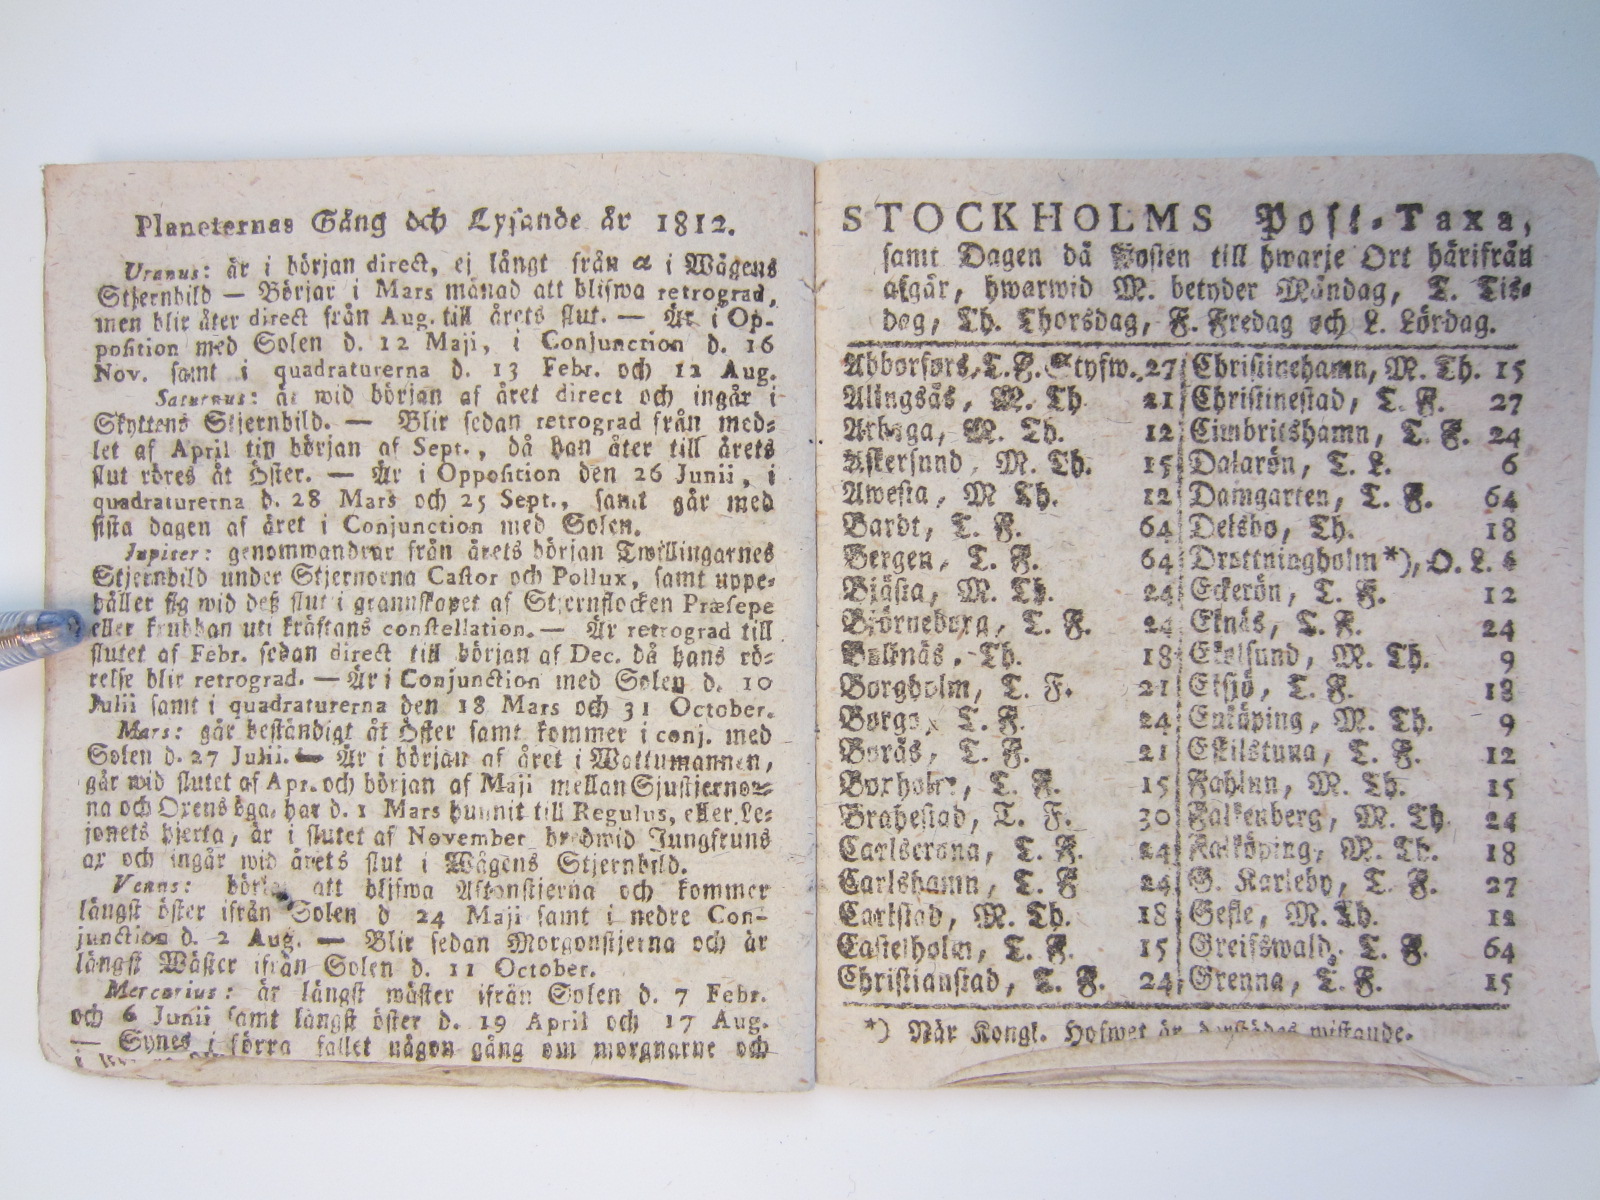 Planeternas Gång och Lysande år 1812.
Uranus: är i början direct, ej långt från α i Wågens
Stjernbild — Börjar i Mars månad att blifwa retrograd,
men blir åter direct från Aug. till årets slut. — Är i Op-
position med Solen d. 12 Maji, i Conjunction d. 16
Nov. samt i quadraturerna d. 13 Febr. och 12 Aug.
Saturnus: är wid början af året direct och ingår i
Skyttens Stjernbild. — Blir sedan retrograd från med-
let af April till början af Sept., då han åter till årets
slut röres åt Öster. — Är i Opposition den 26 Junii, i
quadraturerna d. 28 Mars och 25 Sept., samt går med
sista dagen af året i Conjunction med Solen.
Jupiter: genomwandrar från årets början Twillingarnes
Stjernbild under Stjernorna Castor och Pollux, samt uppe-
håller sig wid deß slut i grannskapet af Stjernflocken Præsepe
eller krubban uti kräftans constellation. — Är retrograd till
slutet af Febr. sedan direct till början af Dec. då hans rö-
relse blir retrograd. — Är i Conjunction med Solen d. 10
Julii samt i quadraturerna den 18 Mars och 31 October.
Mars: går beständigt åt Öster samt kommer i conj. med
Solen d. 27 Julii. — Är i början af året i Wattumannen,
går wid slutet af Apr. och början af Maji mellan Sjustjernor-
na och Oxens öga, har d. 1 Mars hunnit till Regulus, eller Le-
jonets hjerta, är i slutet af November bredwid Jungfruns
ax och ingår wid årets slut i Wågens Stjernbild.
Venus: börjar att blifwa Aftonstjerna och kommer
längst öster ifrån Solen d 24 Maji samt i nedre Con-
junction d. 2 Aug. — Blir sedan Morgonstjerna och är
längst Wäster ifrån Solen d. 11 October.
Mercurius: är längst wäster ifrån Solen d. 7 Febr.
och 6 Junii samt längst öster d. 19 April och 17 Aug.
— Synes i förra fallet någon gång om morgnarne och
STOCKHOLMS Post-Taxa,
samt Dagen då Posten till hwarje Ort härifrån
afgår, hwarwid M. betyder Måndag, T. Tis-
dag, Th. Thorsdag, F. Fredag och L. Lördag.
Abborfors, T. F. Styfw. 27
Alingsås, M. Th. 21
Arboga, M. Th. 12
Askersund, M. Th. 15
Awesta, M Th. 12
Bardt, T. F. 64
Bergen, T. F. 64
Bjästa, M. Th. 24
Björneborg, T. F. 24
Bollnäs, Th. 18
Borgholm, T. F. 21
Borgo, T. F. 24
Borås, T. F. 21
Boxholm, T. F. 15
Brahestad, T. F. 30
Carlscrona, T. F. 24
Carlshamn, T. F 24
Carlstad, M. Th. 18
Castelholm, T. F. 15
Christianstad, T. F. 24
Christinehamn, M. Th. 15
Christinestad, T. F. 27
Cimbritshamn, T. F. 24
Dalarön, T. L. 6
Damgarten, T. F. 64
Delsbo, Th. 18
Drottningholm *), O. L. 6
Eckerön, T. F. 12
Eknäs, T. F. 24
Ekolsund, M. Th. 9
Eksjö, T. F. 18
Enköping, M. Th. 9
Eskilstuna, T. F. 12
Fahlun, M. Th. 15
Falkenberg, M. Th. 24
Falköping, M. Th. 18
G. Karleby, T. F. 27
Gefle, M. Th. 12
Greifswald, T. F. 64
Grenna, T. F. 15
*) När Kongl. Hofwet är derstädes wistande.